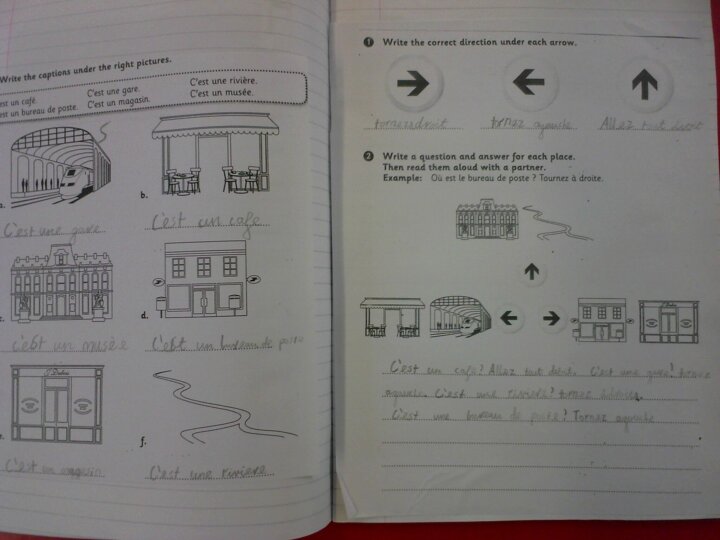 Write the captions under the right pictures.
est un café. C'est une gare. C'est une rivière.
est un bureau de poste. C'est un magasin. C'est un musée.
a. b.
C'est une gare C'est un cafe
c. d.
c'est un musée C'est un bureau de poste
e. f.
C'est un C'est une riviere
1 Write the correct direction under each arrow.
tornez Allez tout droit
2 Write a question and answer for each place.
Then read them aloud with a partner.
Example: Où est le bureau de poste ? Tournez à droite.
C'est un cafe? Allez tout droit. C'est une gare? tornez
C'est une riviere? tornez
C'est une bureau de poste? Tornez